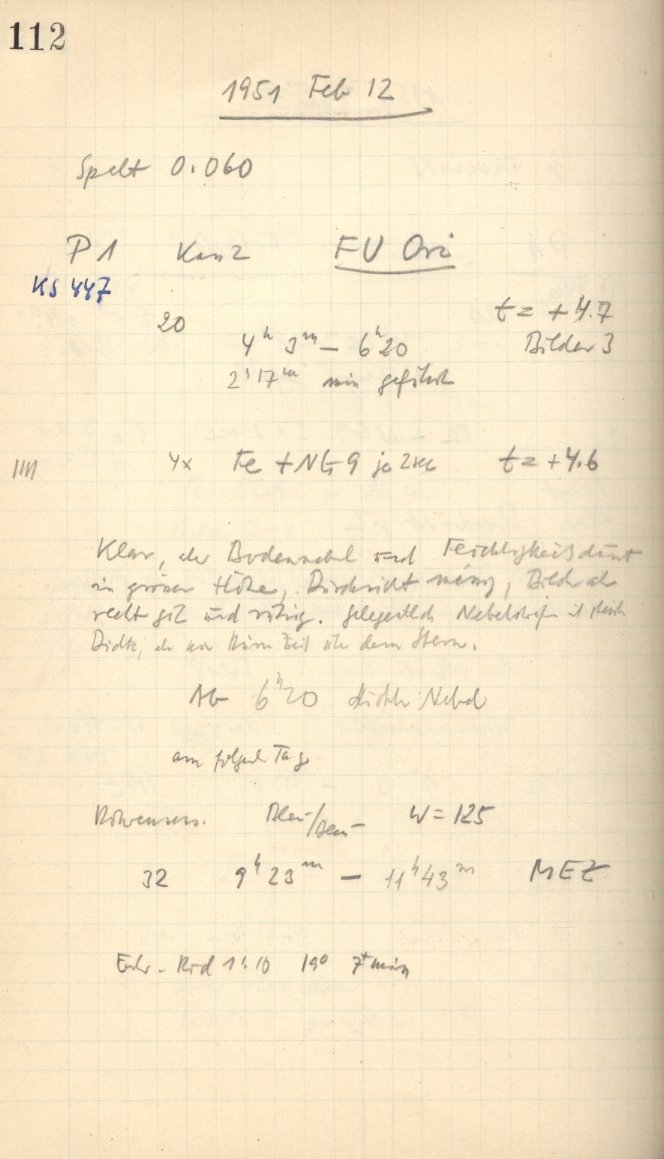 112
1951 Feb 12
Spalt 0.060
P1 Kam 2 FU Ori
KS 447
20 t = +4.7
4ʰ 3ᵐ – 6ʰ20 Bilder 3
2ʰ17ᵐ min geführt
4x Fe + NG 9 je 2sec t = +4.6
Klar, aber Bodennebel und Feuchtigkeitsdunst
in grosser Höhe, Durchsicht mässig, Bilder aber
recht gut und ruhig. Gelegentlich
Dichte, kurze Zeit über dem Stern.
Ab 6ʰ20 dichter Nebel
am folgenden Tag
W = 125
32 9ʰ23ᵐ – 11ʰ43ᵐ MEZ
Entw. Rod 1:10 19° 7 min